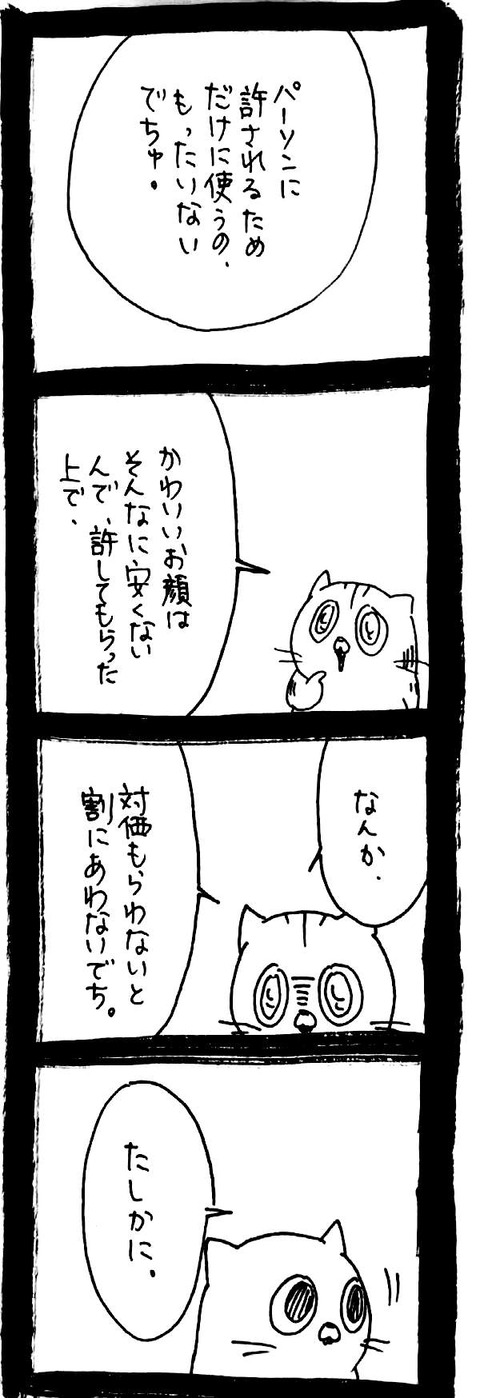 パーソンに
許されるため
だけに使うの、
もったいない
でちゅ。
かわいいお顔は
そんなに安くない
んで、許してもらった
上で、
なんか、
対価もらわないと
割にあわないでち。
たしかに。